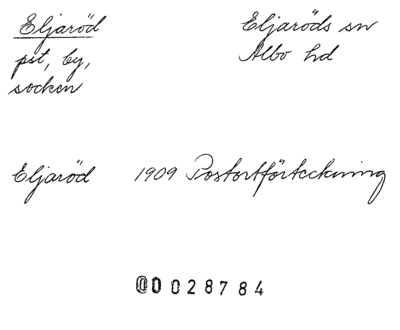 Eljaröd
pst, by,
socken
Eljaröds sn
Albo hd
Eljaröd 1909 Postortförteckning
0028784